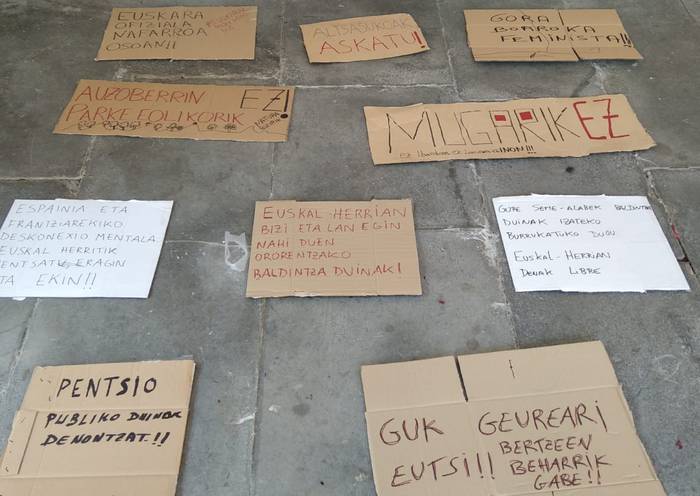 EUSKARA
OFIZIALA
NAFARROA
OSOAN!!
ALTSASUKOAK
ASKATU!
GORA
BORROKA
FEMINISTA!!
AUZOBERRIN EZ!
PARKE EOLIKORIK
MUGARIK EZ
INON!!!
ESPAINIA ETA
FRANTZIAREKIKO
DESKONEXIO MENTALA.
EUSKAL HERRITIK
PENTSATU, ERAGIN
TA EKIN!!
EUSKAL-HERRIAN
BIZI ETA LAN EGIN
NAHI DUEN
ORORENTZAKO
BALDINTZA DUINAK!
GURE SEME-ALABEK BALDINTZA
DUINAK IZATEKO
BURRUKATUKO DUGU
EUSKAL-HERRIAN
DENAK LIBRE
PENTSIO
PUBLIKO DUINAK
DENONTZAT!!
GUK GEUREARI
EUTSI!!! BERTZEEN
BEHARRIK
GABE!!